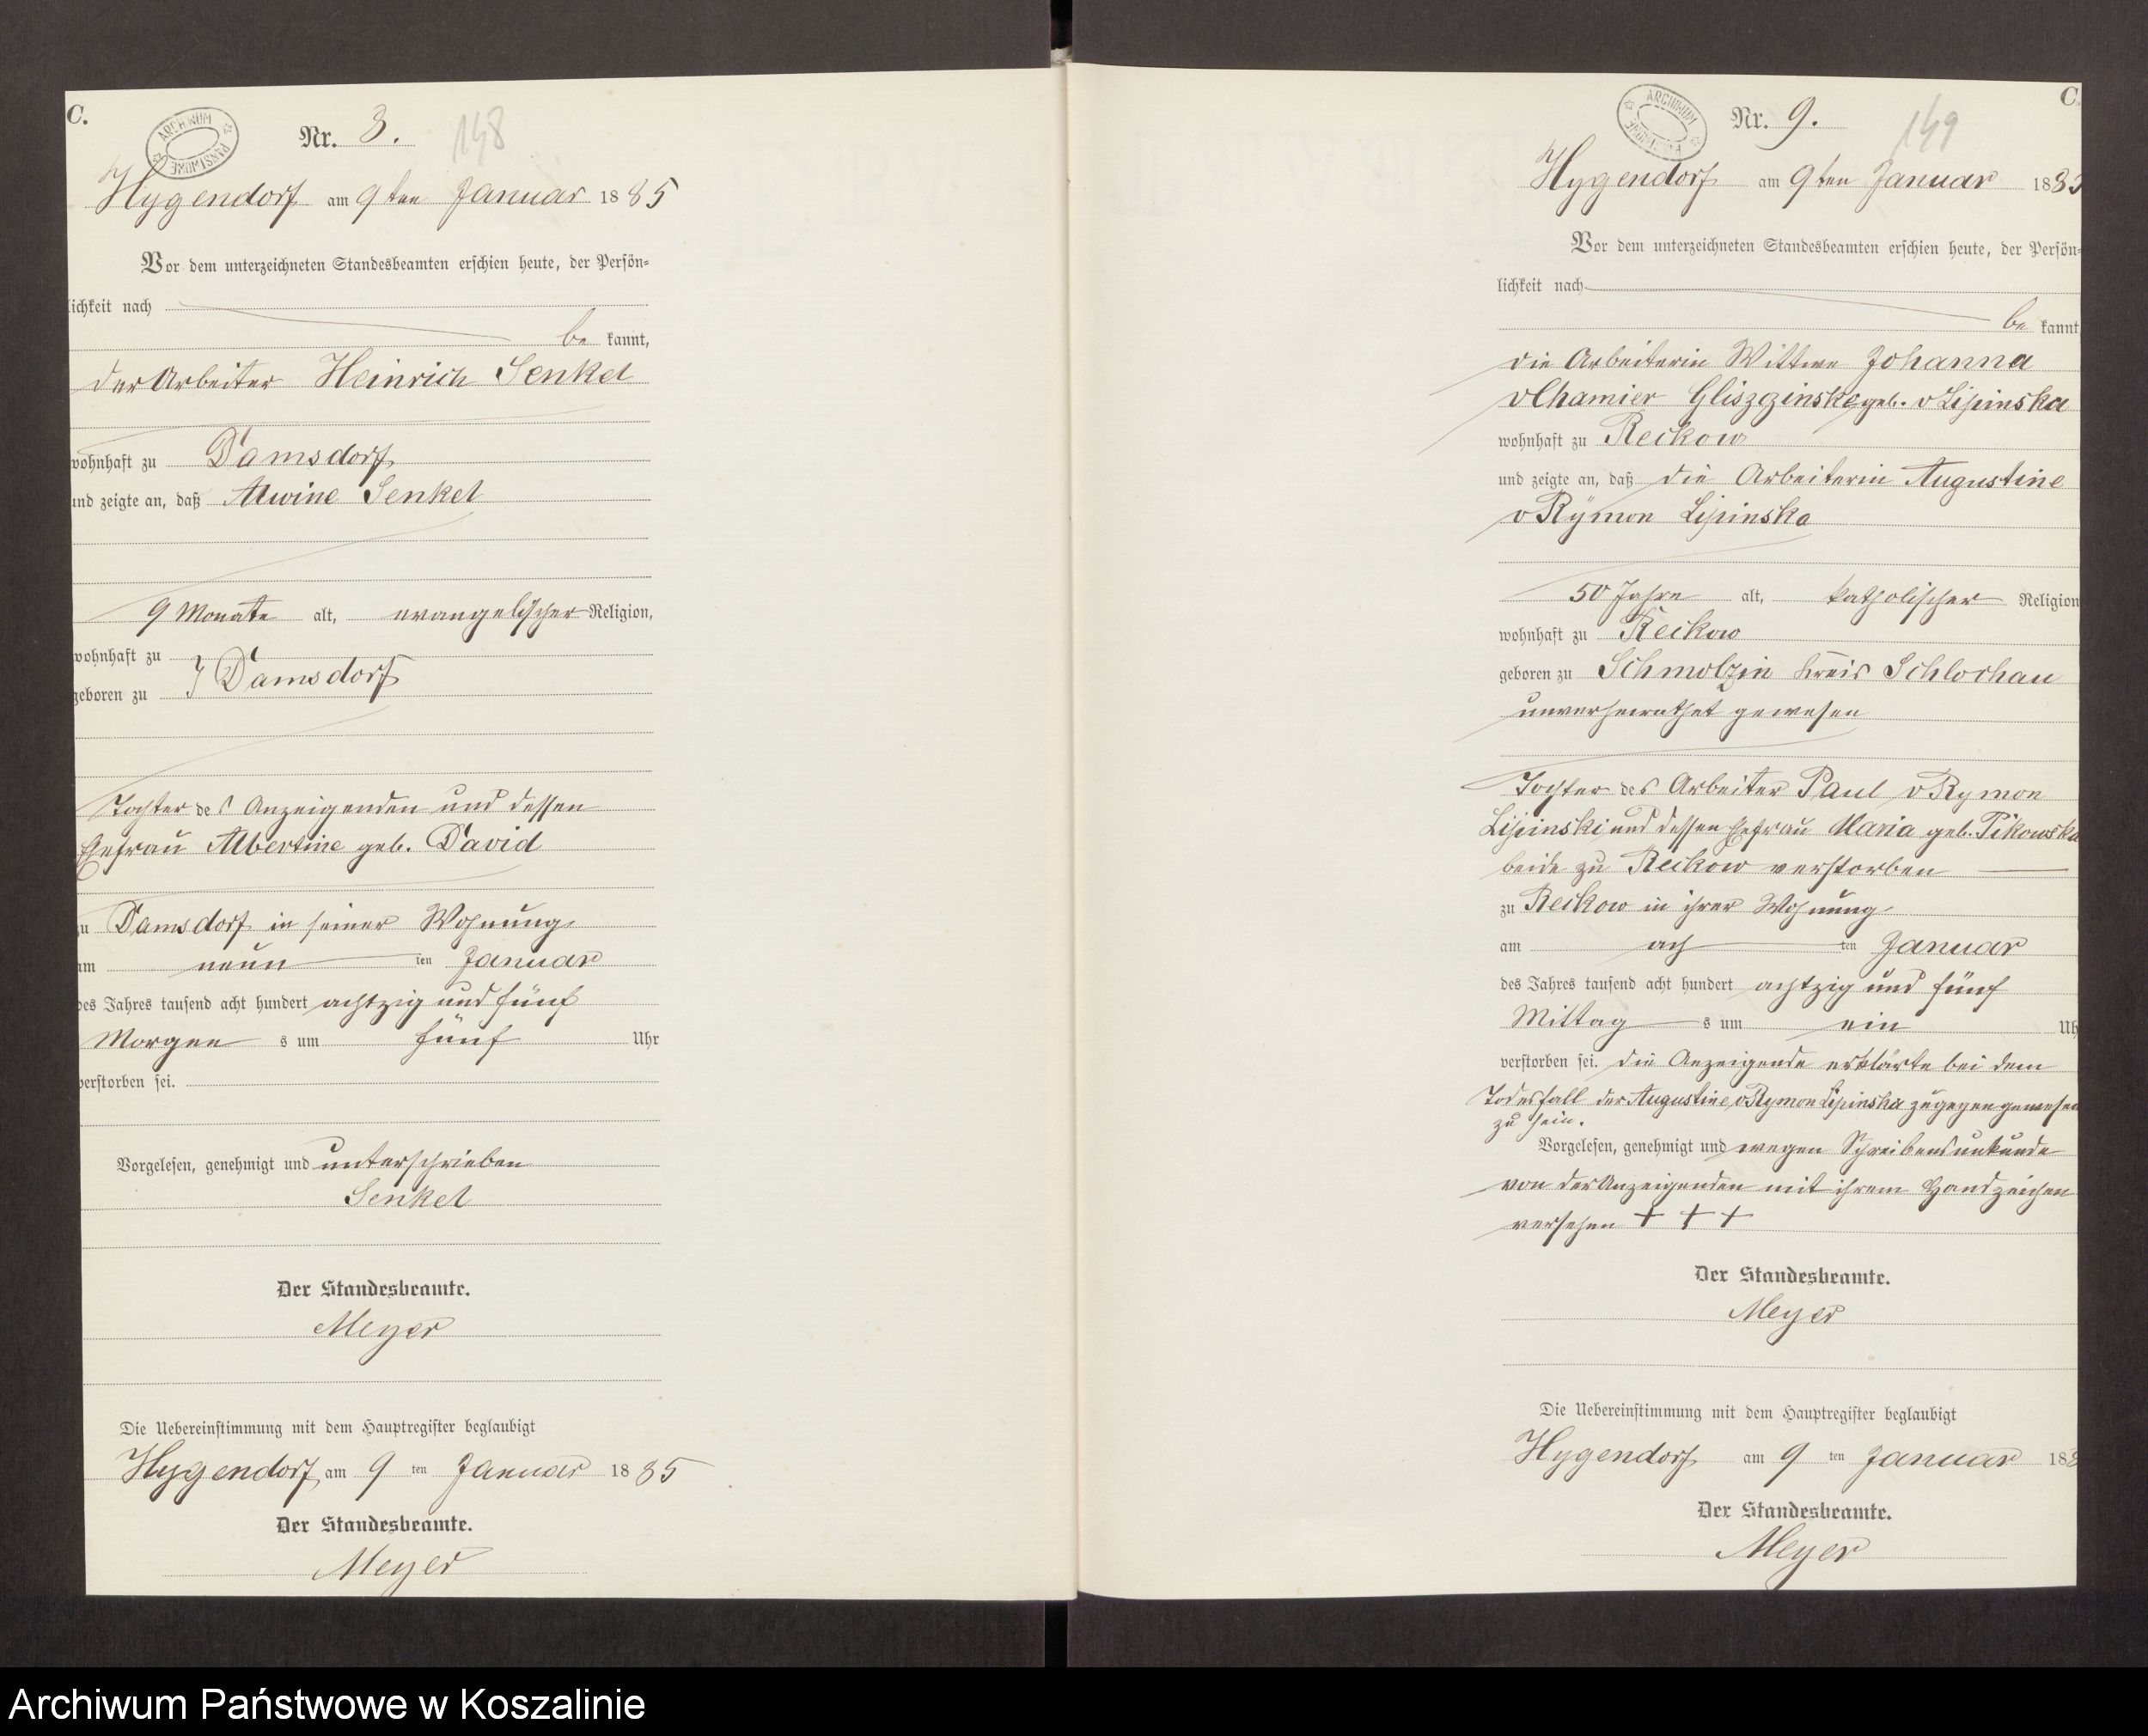 C.
ARCHIWUM PAŃSTWOWE
Nr. 3.
148
Hygendorf am 9ten Januar 1885
Vor dem unterzeichneten Standesbeamten erschien heute, der Persön-
lichkeit nach
be kannt,
der Arbeiter Heinrich Senkel
wohnhaft zu Damsdorf
und zeigte an, daß Alwine Senkel
9 Monate alt, evangelischer Religion,
wohnhaft zu
geboren zu } Damsdorf
Tochter des Anzeigenden und dessen
Ehefrau Albertine geb. David
zu Damsdorf in seiner Wohnung
am neun ten Januar
des Jahres tausend acht hundert achtzig und fünf
Morgen s um fünf Uhr
verstorben sei.
Vorgelesen, genehmigt und unterschrieben
Senkel
Der Standesbeamte.
Meyer
Die Uebereinstimmung mit dem Hauptregister beglaubigt
Hygendorf, am 9 ten Januar 1885
Der Standesbeamte.
Meyer
C.
ARCHIWUM
Nr. 9.
149
Hygendorf am 9ten Januar 1885
Vor dem unterzeichneten Standesbeamten erschien heute, der Persön-
lichkeit nach
be kannt
die Arbeiterin Wittwe Johanna
v Chamier Gliszczinski geb. v Lipinska
wohnhaft zu Reckow
und zeigte an, daß die Arbeiterin Augustine
v Rymon Lipinska
50 Jahre alt, katholischer Religion
wohnhaft zu Reckow
geboren zu Schmolzin Kreis Schlochau
unverheirathet gewesen
Tochter des Arbeiter Paul v Rymon
Lipinski und dessen Ehefrau Maria geb. Pikowska
beide zu Reckow verstorben
zu Reckow in ihrer Wohnung
am ach ten Januar
des Jahres tausend acht hundert achtzig und fünf
Mittag s um ein Uh
verstorben sei. die Anzeigende erklärte bei dem
Todesfall der Augustine v Rymon Lipinska zugegen gewesen
zu sein.
Vorgelesen, genehmigt und wegen Schreibensunkunde
von der Anzeigenden mit ihrem Handzeichen
versehen + + +
Der Standesbeamte.
Meyer
Die Uebereinstimmung mit dem Hauptregister beglaubigt
Hygendorf am 9 ten Januar 188
Der Standesbeamte.
Meyer
Archiwum Państwowe w Koszalinie